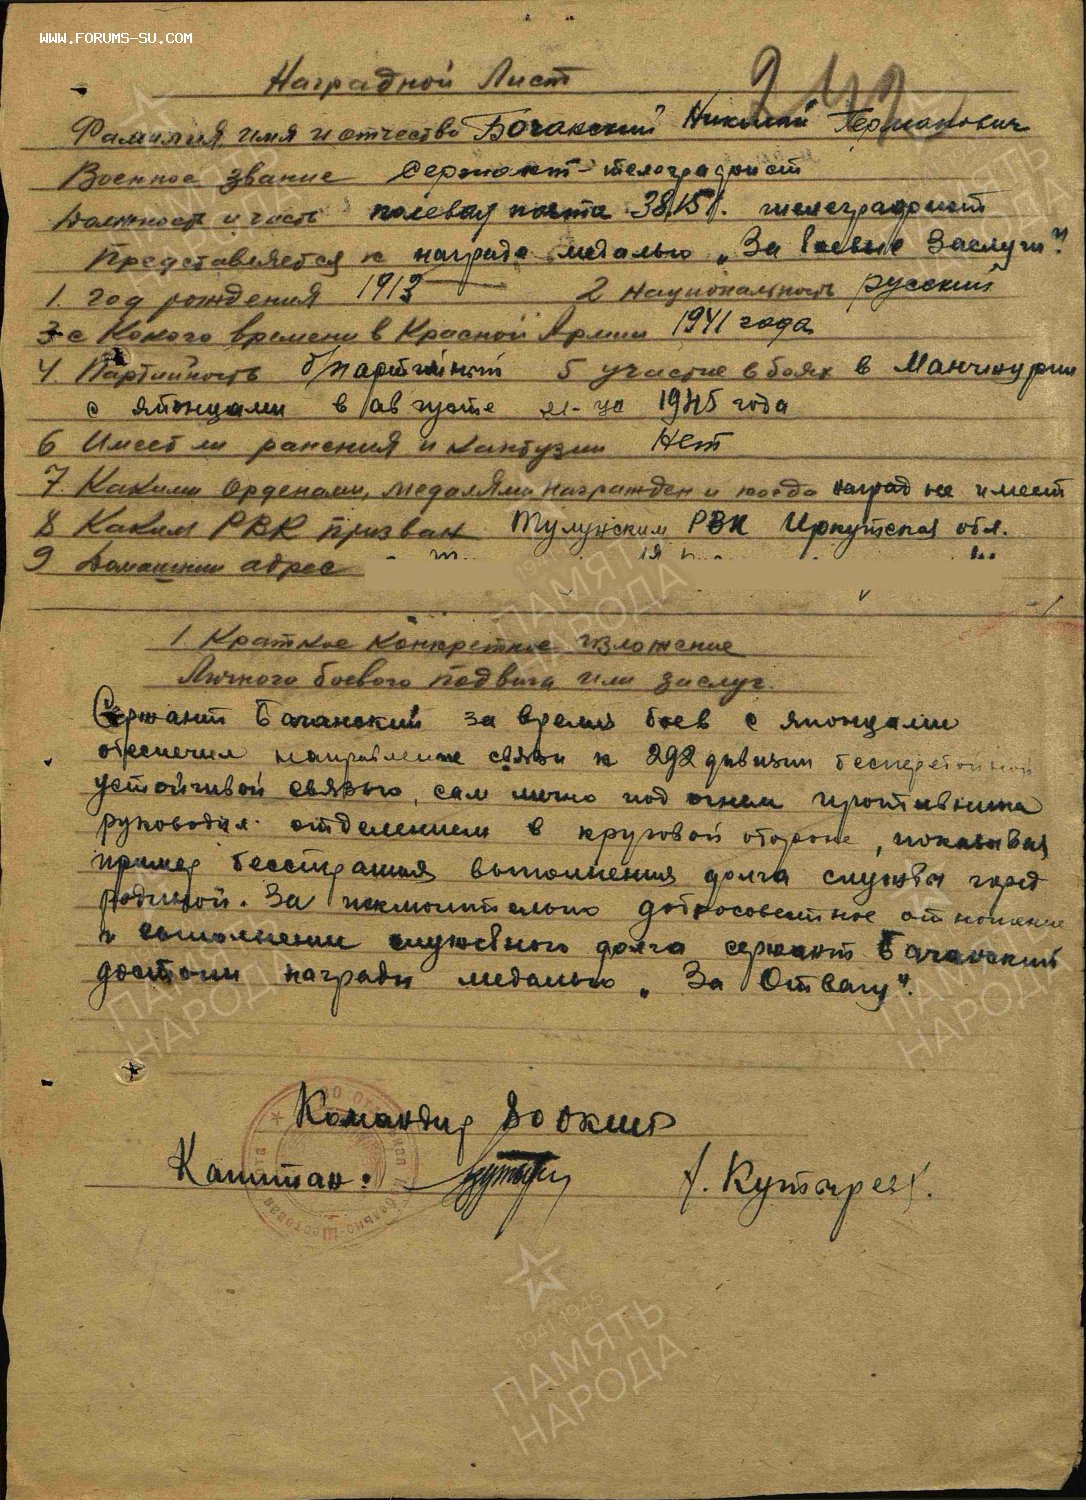 WWW.FORUMS-SU.COM
Наградной Лист
242
Фамилия имя и отчество Бочанский Николай Германович
Военное звание Сержант-телеграфист
Должность и часть полевая почта 38151. телеграфист
Представляется к награде медалью „За боевые заслуги"
1. год рождения 1913 2 национальность русский
3 с какого времени в Красной Армии 1941 года
4. Партийность б/партийный 5 участие в боях в Манчжурии
с японцами в августе м-це 1945 года
6 Имеет ли ранения и контузии Нет
7. Какими орденами, медалями награжден и когда наград не имеет
8 Каким РВК призван Тулунским РВК Иркутская обл.
9 Домашний адрес
1. Краткое конкретное изложение
Личного боевого подвига или заслуг.
Сержант Бачанский за время боев с японцами
обеспечил направление связи к 292 дивизии бесперебойной
устойчивой связью, сам лично под огнем противника
руководил отделением в круговой обороне, показывая
пример бесстрашия выполнения долга службы перед
родиной. За исключительно добросовестное отношение
к выполнении служебного долга сержант Бачанский
достоин награды медалью „За Отвагу".
Командир
Капитан: /. Кутырев/.
ПАМЯТЬ
НАРОДА
1941-1945
ПАМЯТЬ
НАРОДА